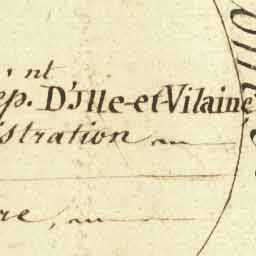 nt
ep. D'Ille-et-Vilaine
stration
re,